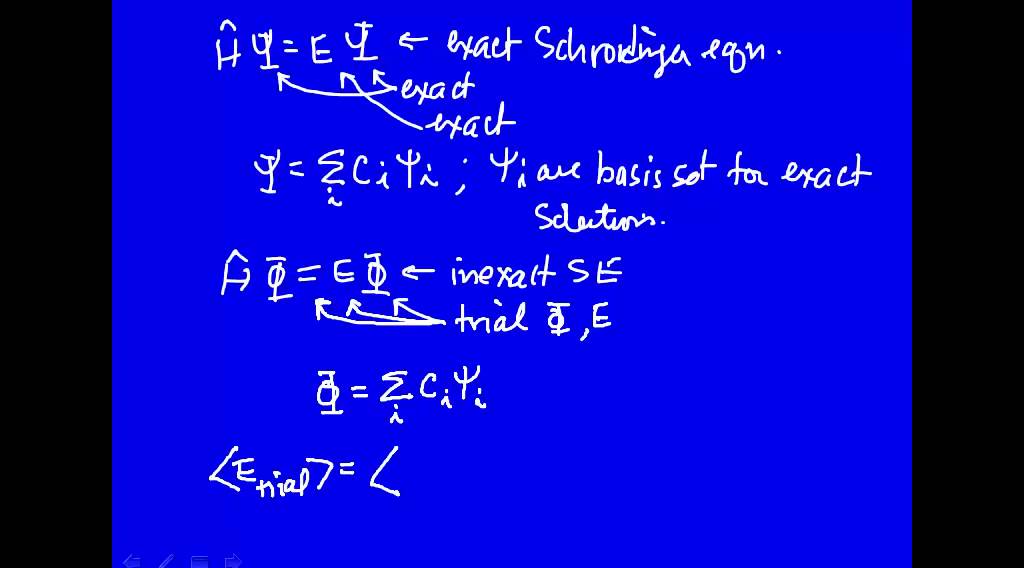 Ĥ Ψ = E Ψ ← exact Schrodinger eqn.
exact
exact
Ψ = Σ_i C_i Ψ_i ; Ψ_i are basis set for exact
Solutions.
Ĥ Φ = E Φ ← inexact SE
trial Φ, E
Φ = Σ_i C_i Ψ_i
⟨E_trial⟩ = ⟨